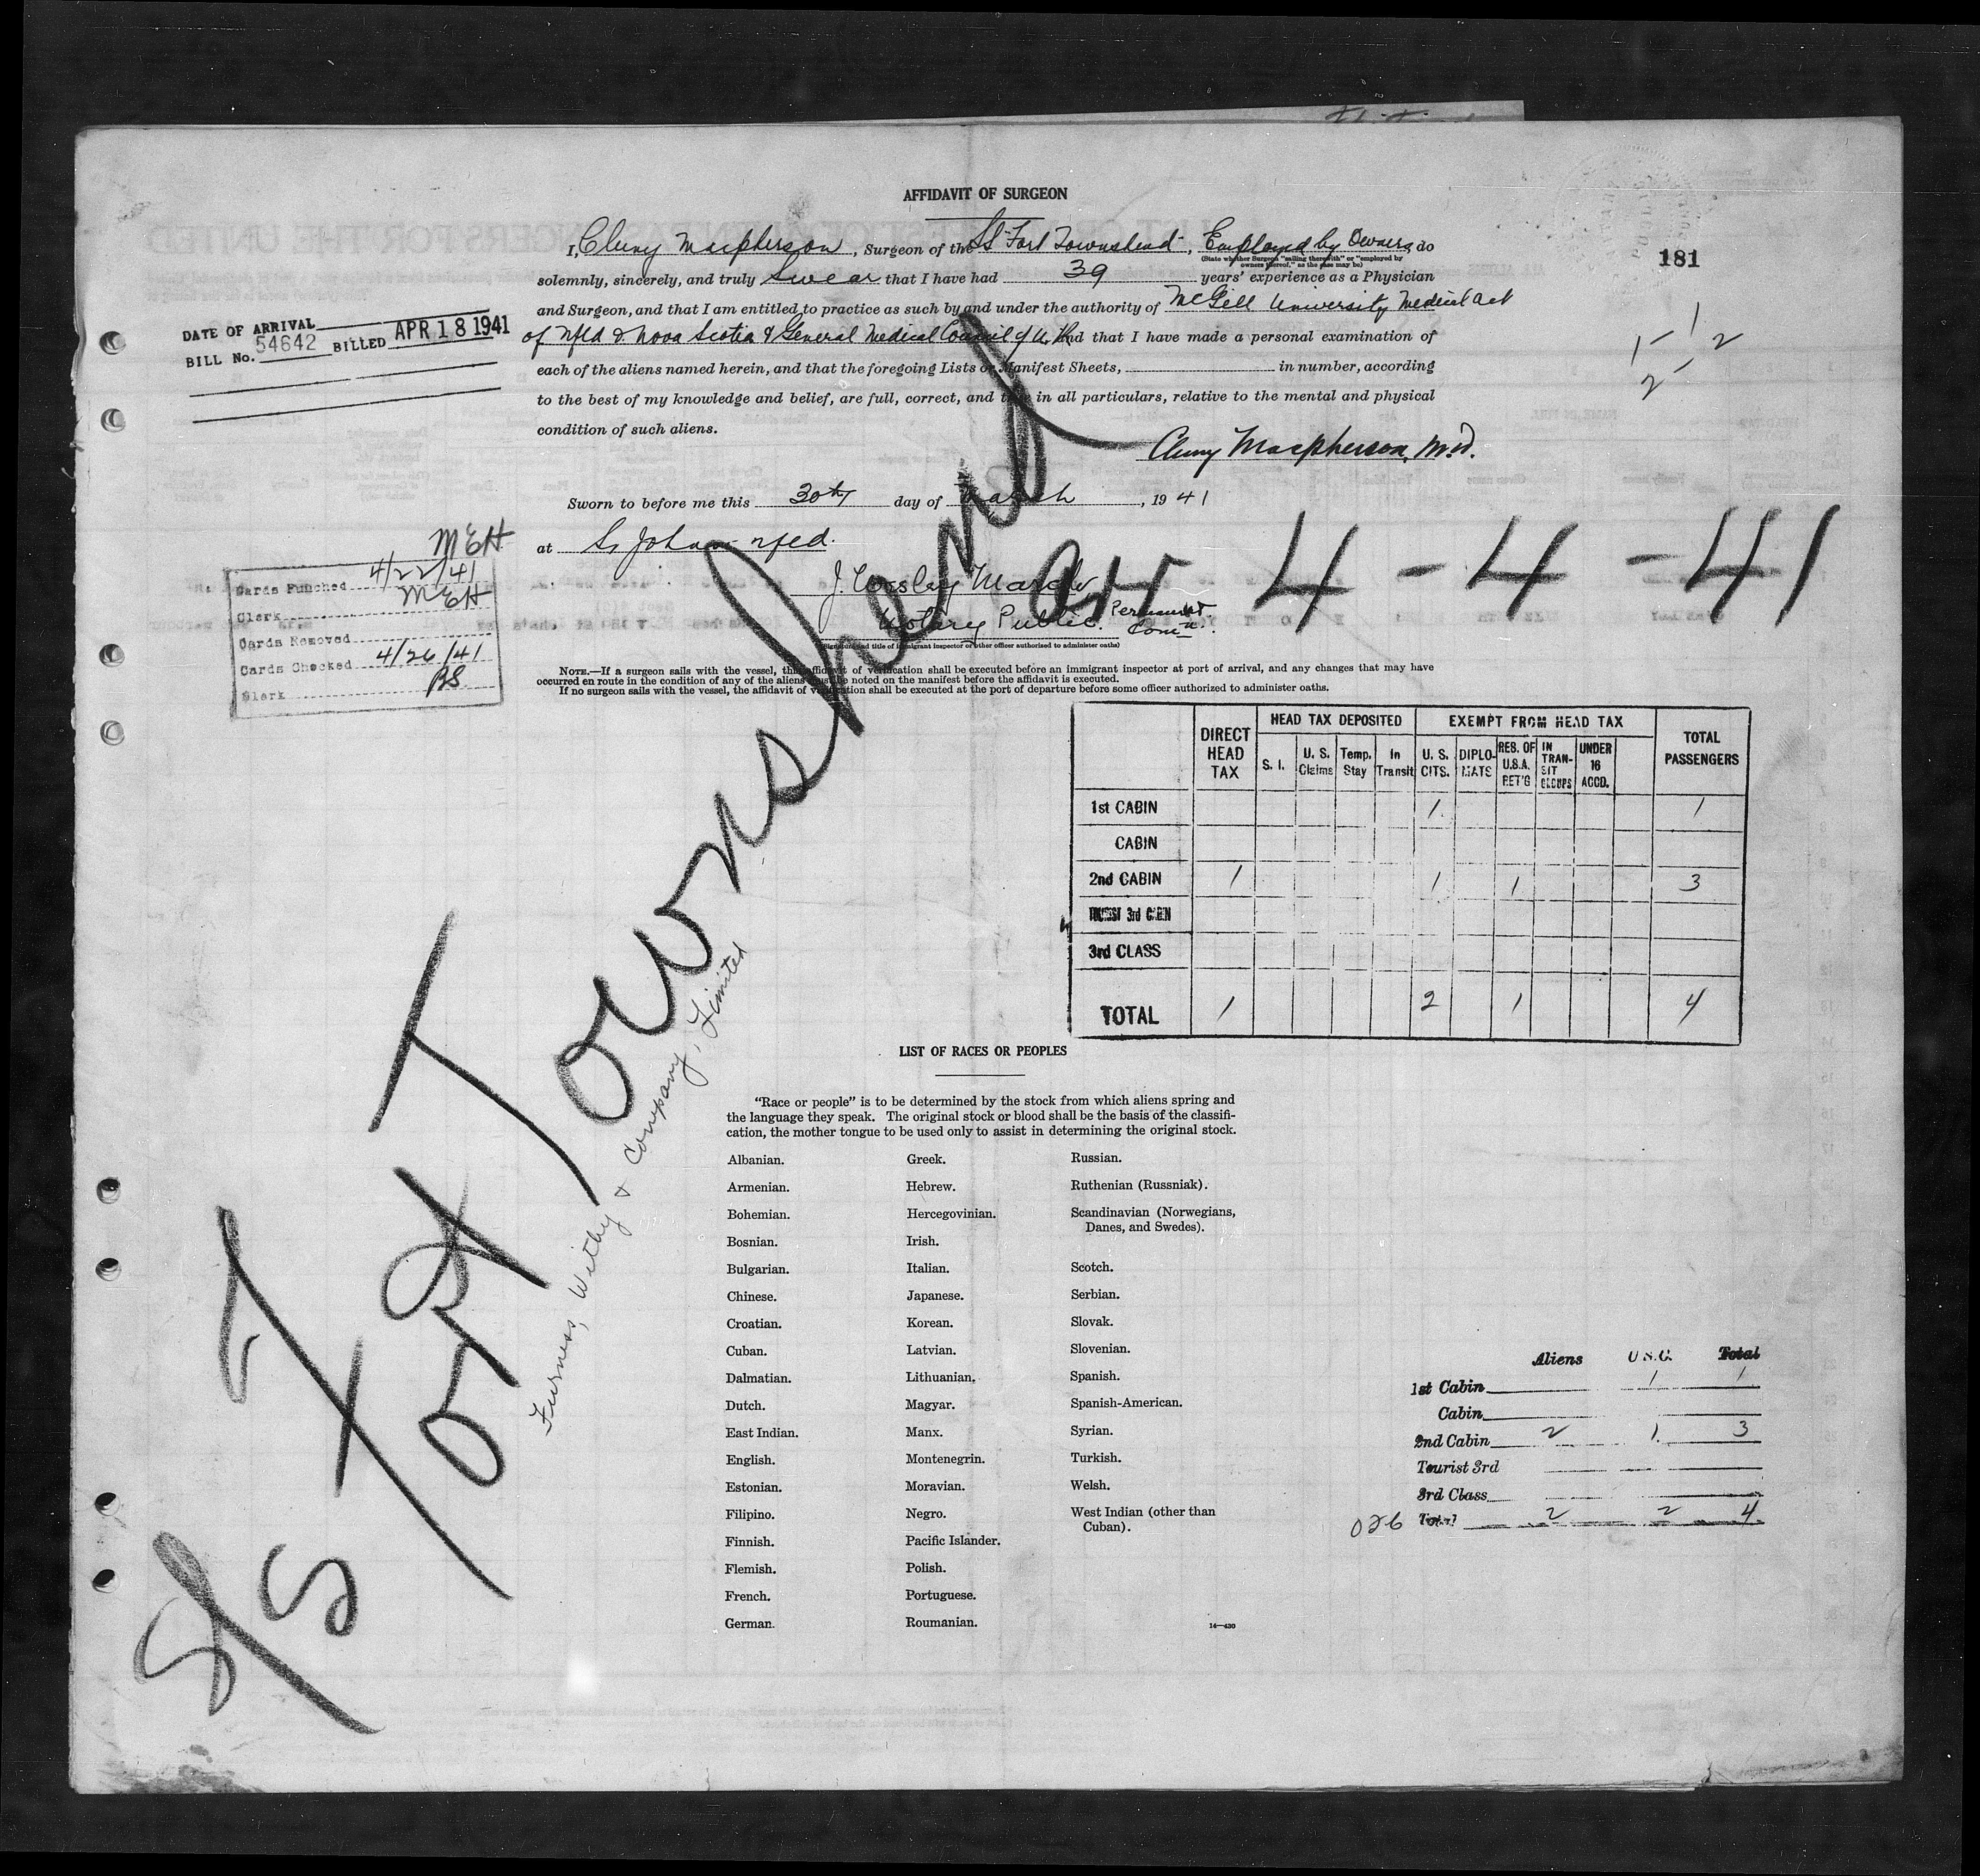 AFFIDAVIT OF SURGEON
I, Cluny Macpherson, Surgeon of the SS Fort Townshend, Employed by Owners, do
(State whether Surgeon "sailing therewith" or "employed by
owners thereof," as the case may be)
181
solemnly, sincerely, and truly swear that I have had 39 years' experience as a Physician
and Surgeon, and that I am entitled to practice as such by and under the authority of McGill University Medical Act
of Nfld & Nova Scotia & General Medical Council of U.K. and that I have made a personal examination of
each of the aliens named herein, and that the foregoing Lists or Manifest Sheets, in number, according
to the best of my knowledge and belief, are full, correct, and true in all particulars, relative to the mental and physical
condition of such aliens.
DATE OF ARRIVAL
BILL No. 54642 BILLED APR 18 1941
1 - 1
2 - 2
Cluny Macpherson, M.D.
Sworn to before me this 30th day of March, 1941
at St Johns nfld.
Notary Public. Permanent
Comn.
(Signature and title of immigrant inspector or other officer authorized to administer oaths)
MEH
Cards Punched 4/22/41
Clerk MEH
Cards Removed
Cards Checked 4/26/41
Clerk RS
S/S Fort Townshend arr 4-4-41
Furness, Withy & Company, Limited
NOTE.—If a surgeon sails with the vessel, this affidavit of verification shall be executed before an immigrant inspector at port of arrival, and any changes that may have
occurred en route in the condition of any of the aliens must be noted on the manifest before the affidavit is executed.
If no surgeon sails with the vessel, the affidavit of verification shall be executed at the port of departure before some officer authorized to administer oaths.
DIRECT HEAD TAX HEAD TAX DEPOSITED EXEMPT FROM HEAD TAX TOTAL PASSENGERS
S. I. U. S. Claims Temp. Stay In Transit U. S. CITS. DIPLO-MATS RES. OF U.S.A. RET'G IN TRAN-SIT GROUPS UNDER 16 ACCD.
1st CABIN 1 1
CABIN
2nd CABIN 1 1 1 3
TOURIST 3rd CABIN
3rd CLASS
TOTAL 1 2 1 4
LIST OF RACES OR PEOPLES
"Race or people" is to be determined by the stock from which aliens spring and
the language they speak. The original stock or blood shall be the basis of the classifi-
cation, the mother tongue to be used only to assist in determining the original stock.
Albanian.
Armenian.
Bohemian.
Bosnian.
Bulgarian.
Chinese.
Croatian.
Cuban.
Dalmatian.
Dutch.
East Indian.
English.
Estonian.
Filipino.
Finnish.
Flemish.
French.
German.
Greek.
Hebrew.
Hercegovinian.
Irish.
Italian.
Japanese.
Korean.
Latvian.
Lithuanian.
Magyar.
Manx.
Montenegrin.
Moravian.
Negro.
Pacific Islander.
Polish.
Portuguese.
Roumanian.
Russian.
Ruthenian (Russniak).
Scandinavian (Norwegians,
Danes, and Swedes).
Scotch.
Serbian.
Slovak.
Slovenian.
Spanish.
Spanish-American.
Syrian.
Turkish.
Welsh.
West Indian (other than
Cuban).
14—430
Aliens U.S.C. Total
1st Cabin 1 1
Cabin
2nd Cabin 2 1 3
Tourist 3rd
3rd Class
026 Total 2 2 4